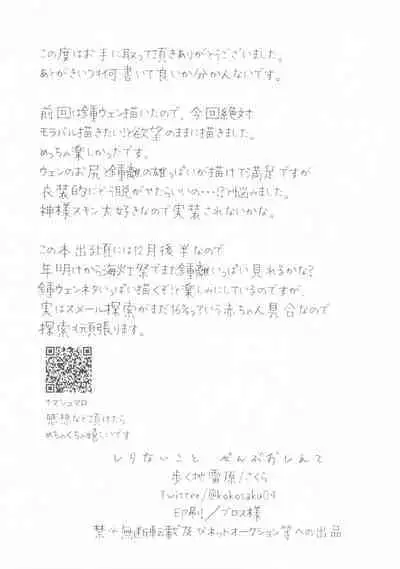 この度はお手に取って頂きありがとうございました。
あとがきいつも何書いて良いか分かんないです。
前回は鍾ウェン描いたので、今回絶対
モラバル描きたい!と欲望のままに描きました。
めっちゃ楽しかったです。
ウェンのお尻と鍾離の雄っぱいが描けて満足ですが
衣装的にどう脱がせたらいいの…!?と悩みました。
神様スキン大好きなので実装されないかな。
この本出る頃には12月後半なので
年明けから海灯祭でまた鍾離いっぱい見れるかな?
鍾ウェンネタいっぱい描くぞ!と楽しみにしているのですが、
実はスメール探索がまだ16%っていう赤ちゃん具合なので
探索も頑張ります。
↑マシュマロ
感想など頂けたら
めちゃくちゃ嬉しいです
しりないこと ぜんぶおしえて
歩く地雷原/さくら
Twitter/@kokosaku04
EP刷り/ブロス様
禁・無断転載及びネットオークション等への出品